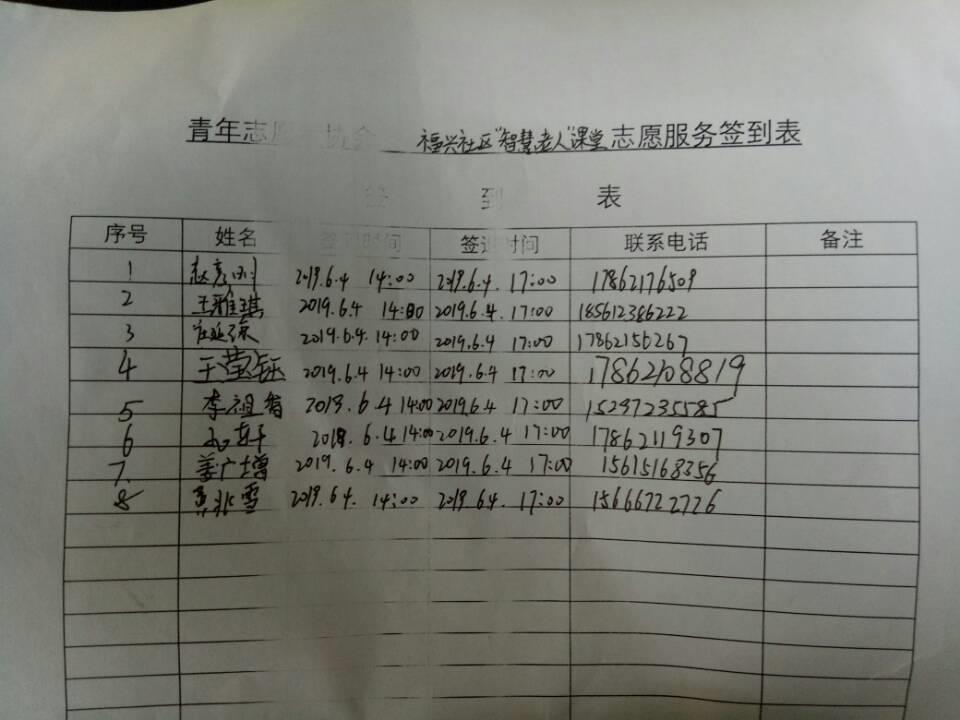 青年志愿者协会 福兴社区"智慧老人"课堂志愿服务签到表
签 到 表
序号 姓名 签到时间 签退时间 联系电话 备注
1 赵彦刚 2019.6.4 14:00 2019.6.4. 17:00 17862176509
2 王雅琪 2019.6.4 14:00 2019.6.4. 17:00 185612386222
3 2019.6.4. 14:00 2019.6.4 17:00 17862156267
4 王莹钰 2019.6.4 14:00 2019.6.4 17:00 17862108819
5 李祖智 2019.6.4 14:00 2019.6.4 17:00 15297235585
6 2019.6.4 14:00 2019.6.4 17:00 17862119307
7. 姜广增 2019.6.4 14:00 2019.6.4 17:00 15615168356
8 2019.6.4. 14:00 2019.6.4. 17:00 15666722726